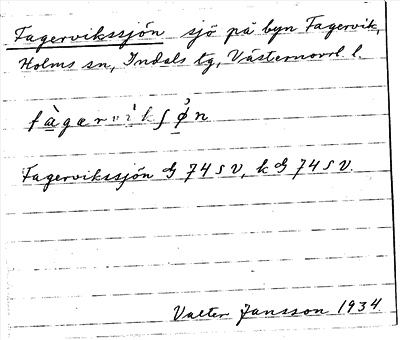 Fagervikssjön sjö på byn Fagervik,
Holms sn, Indals tg, Västernorrl. l.
fàgærvìkʃø̀n
Fagervikssjön G 74 S V, k G 74 S V.
Valter Jansson 1934